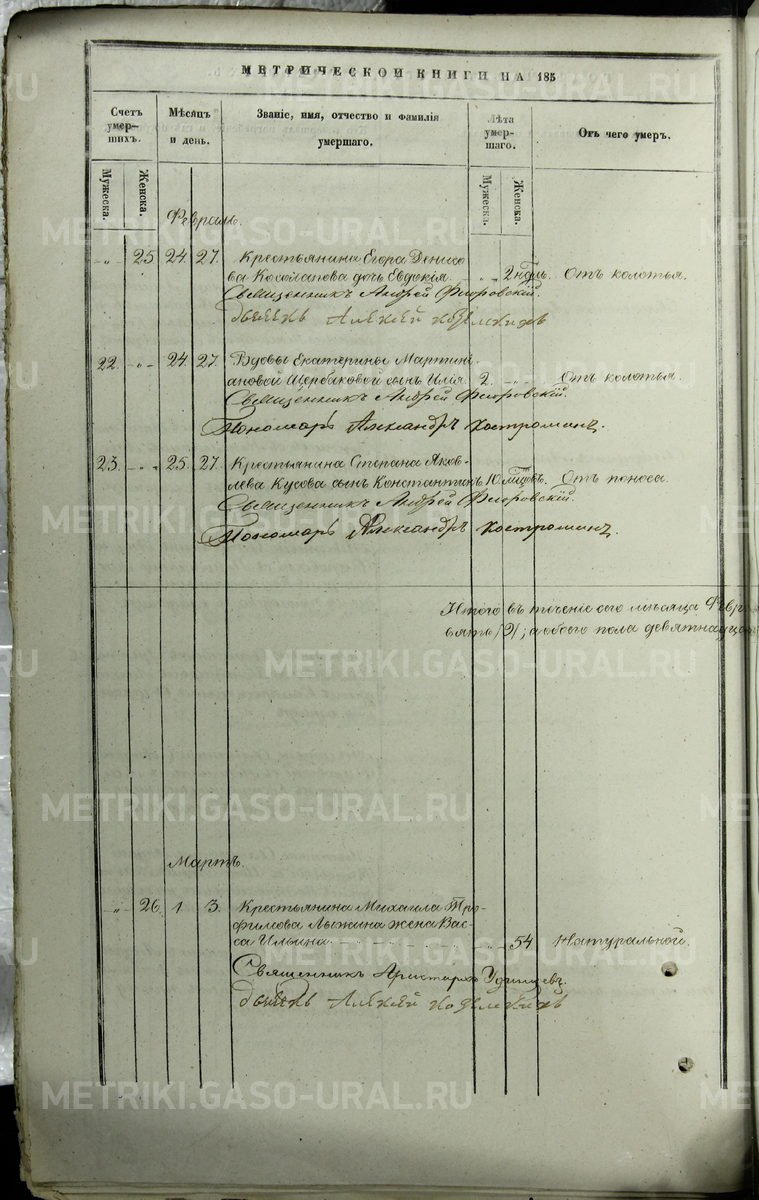 МЕТРИЧЕСКОЙ КНИГИ НА 185
Счетъ умер-шихъ.
Мѣсяцъ и день.
Званіе, имя, отчество и фамилія умершаго.
Лѣта умер-шаго.
Отъ чего умеръ.
Мужеска.
Женска.
Мужеска.
Женска.
Февраль.
„ 25 24. 27. Крестьянина Егора Денисо
ва Косолапова дочь Евдокія. „ 2 ндѣль. Отъ колотья.
Священникъ Андрей Флоровскій.
Алексей
22. „ 24. 27. Вдовы Екатерины Мартині-
ановой Щербаковой сынъ Илія. 2. „ Отъ колотья.
Священникъ Андрей Флоровскій.
Пономарь Александръ Костроминъ.
23. „ 25. 27. Крестьянина Стефана Яков-
лева Кусова сынъ Константинъ 10 мцовъ. Отъ поноса.
Священникъ Андрей Флоровскій.
Пономарь Александръ Костроминъ.
Итого въ теченіе сего мѣсяца Февр
вять /9/; а обоего пола девятнадцат
Мартъ.
„ 26. 1 3. Крестьянина Михаила Тро-
фимова Лыжина жена Вас-
са Ильина. „ 54 Натуральной.
Священникъ Аристархъ Удинцевъ.
Алексей
METRIKI.GASO-URAL.RU